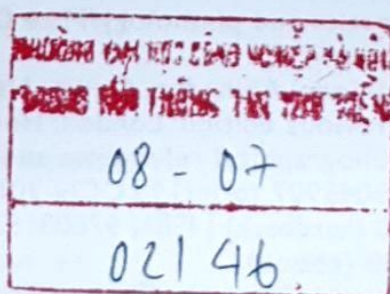 TRƯỜNG ĐẠI HỌC CÔNG NGHIỆP HÀ NỘI
TRUNG TÂM THÔNG TIN THƯ VIỆN
08 - 07
02146